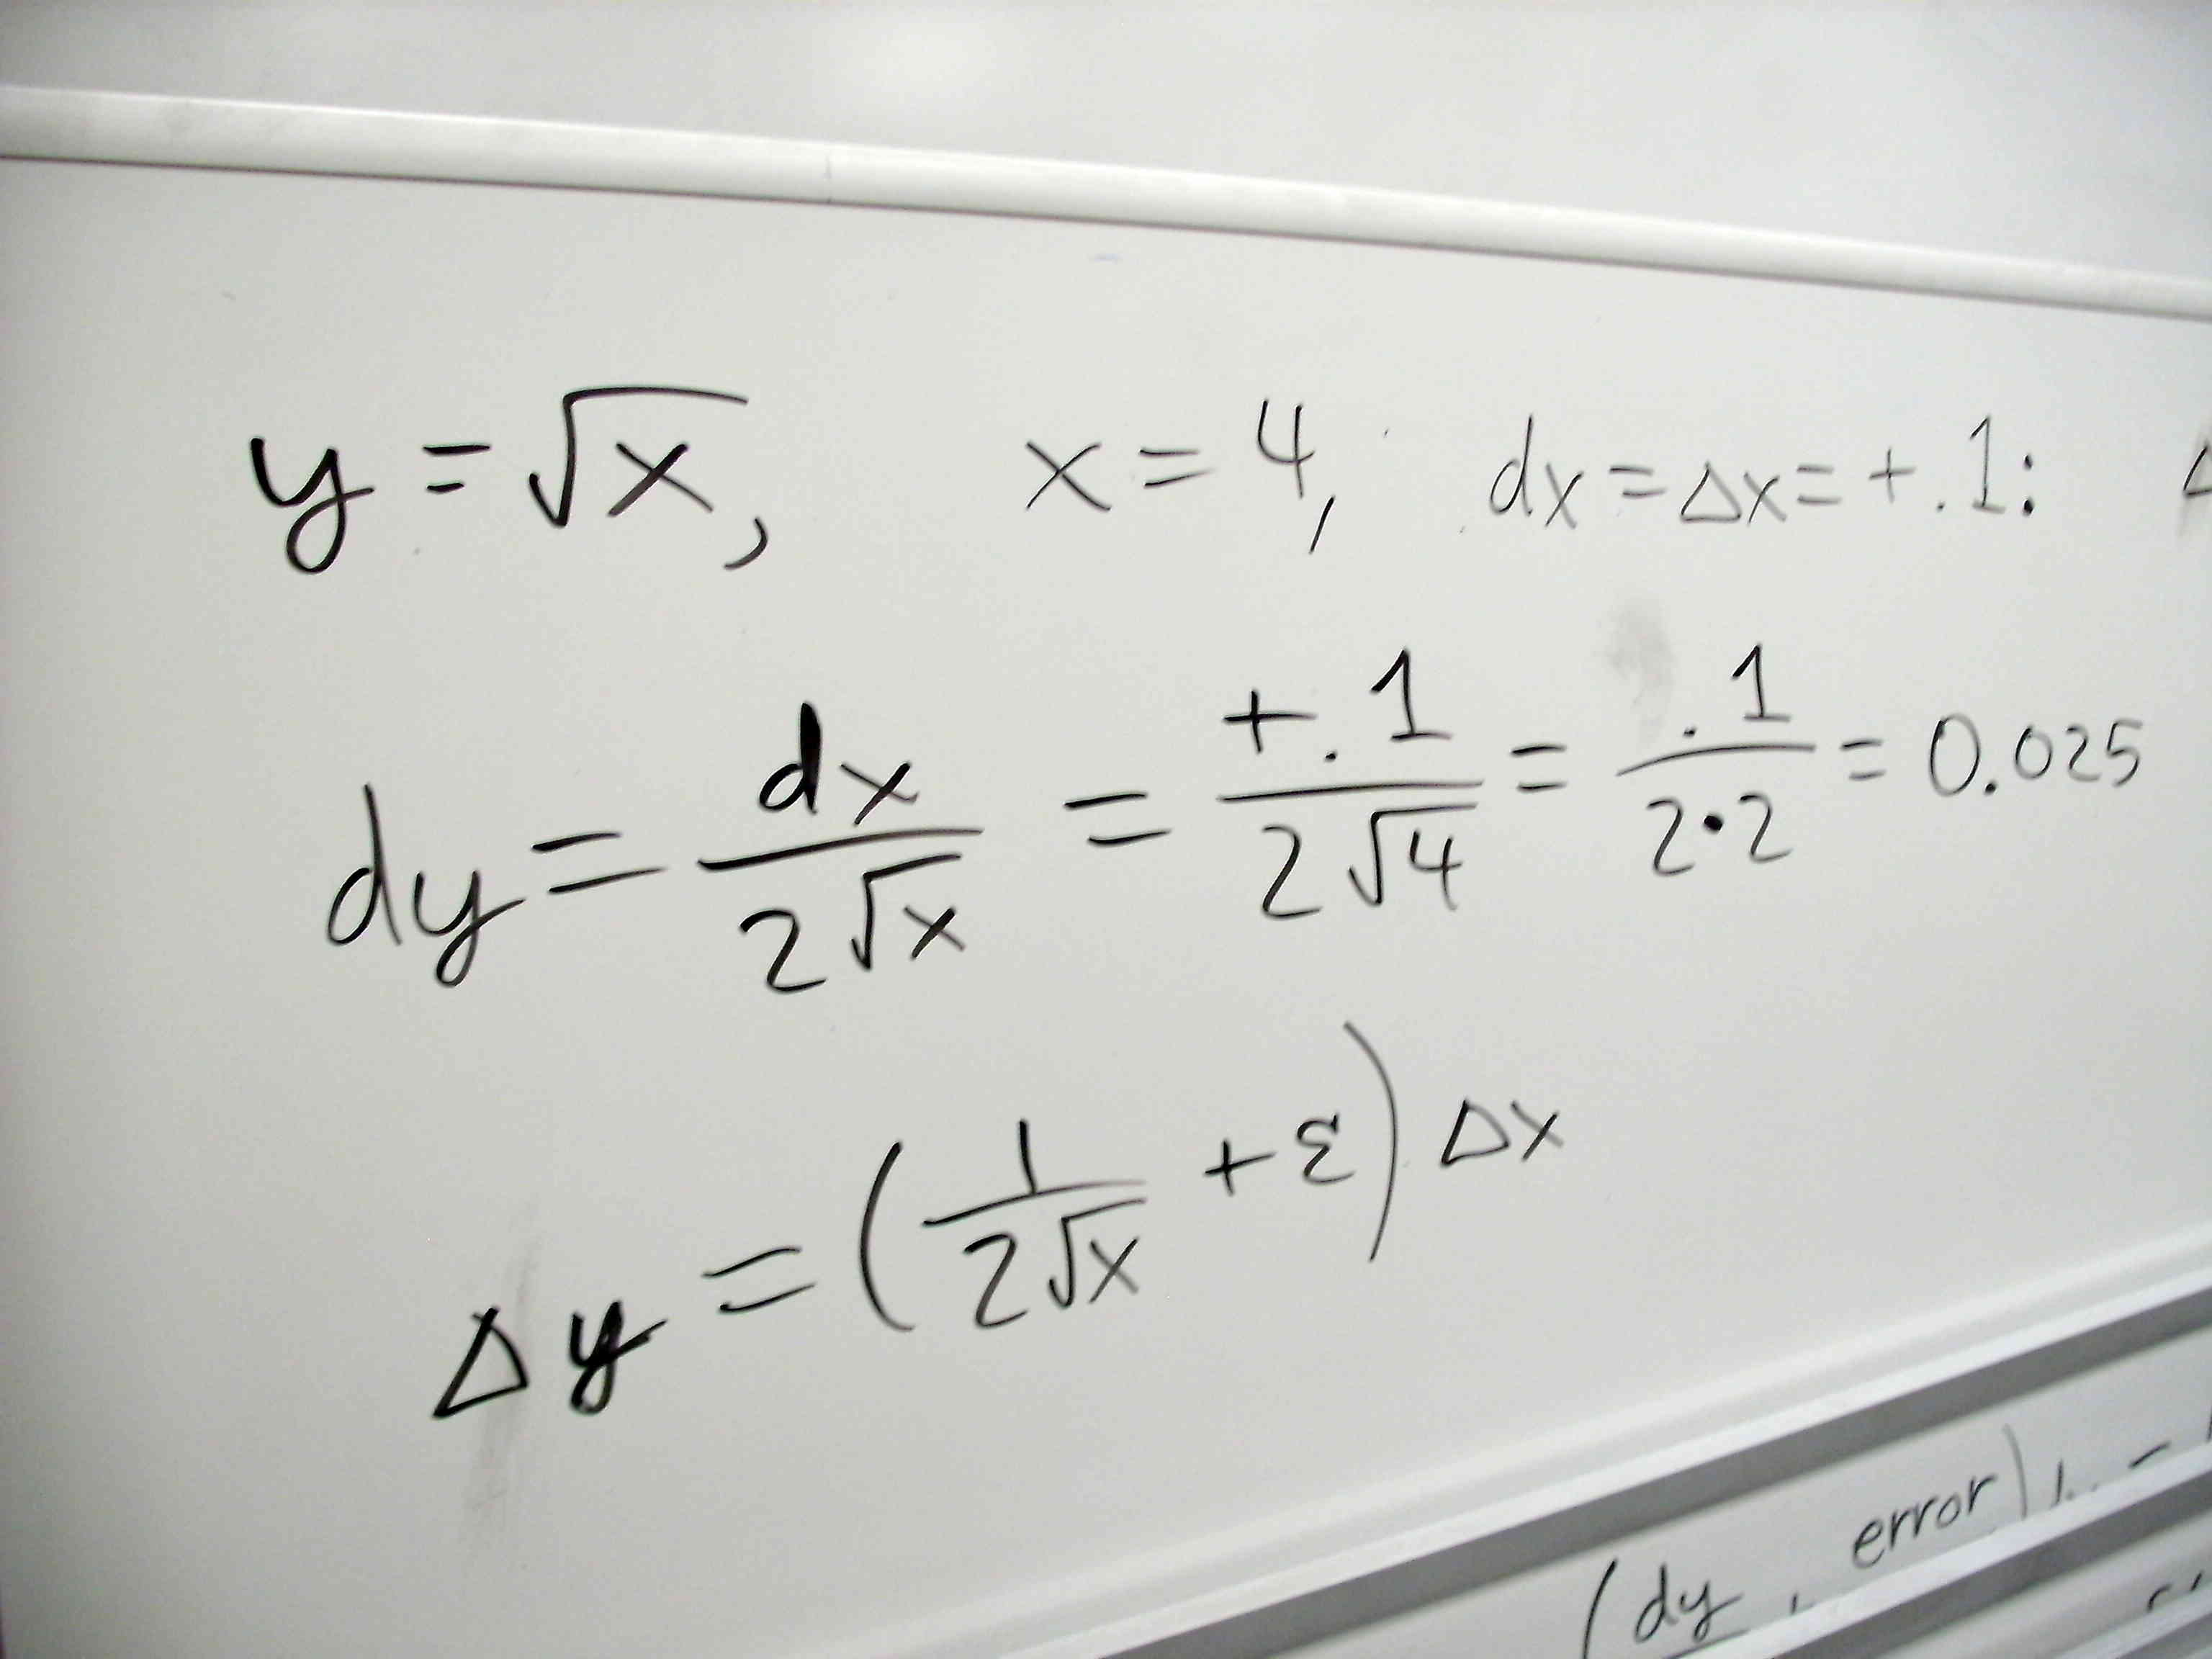 y = √x, x = 4, dx = Δx = +.1: Δ
dy = dx/(2√x) = +.1/(2√4) = .1/(2·2) = 0.025
Δy = (1/(2√x) + ε) Δx
(dy, error)